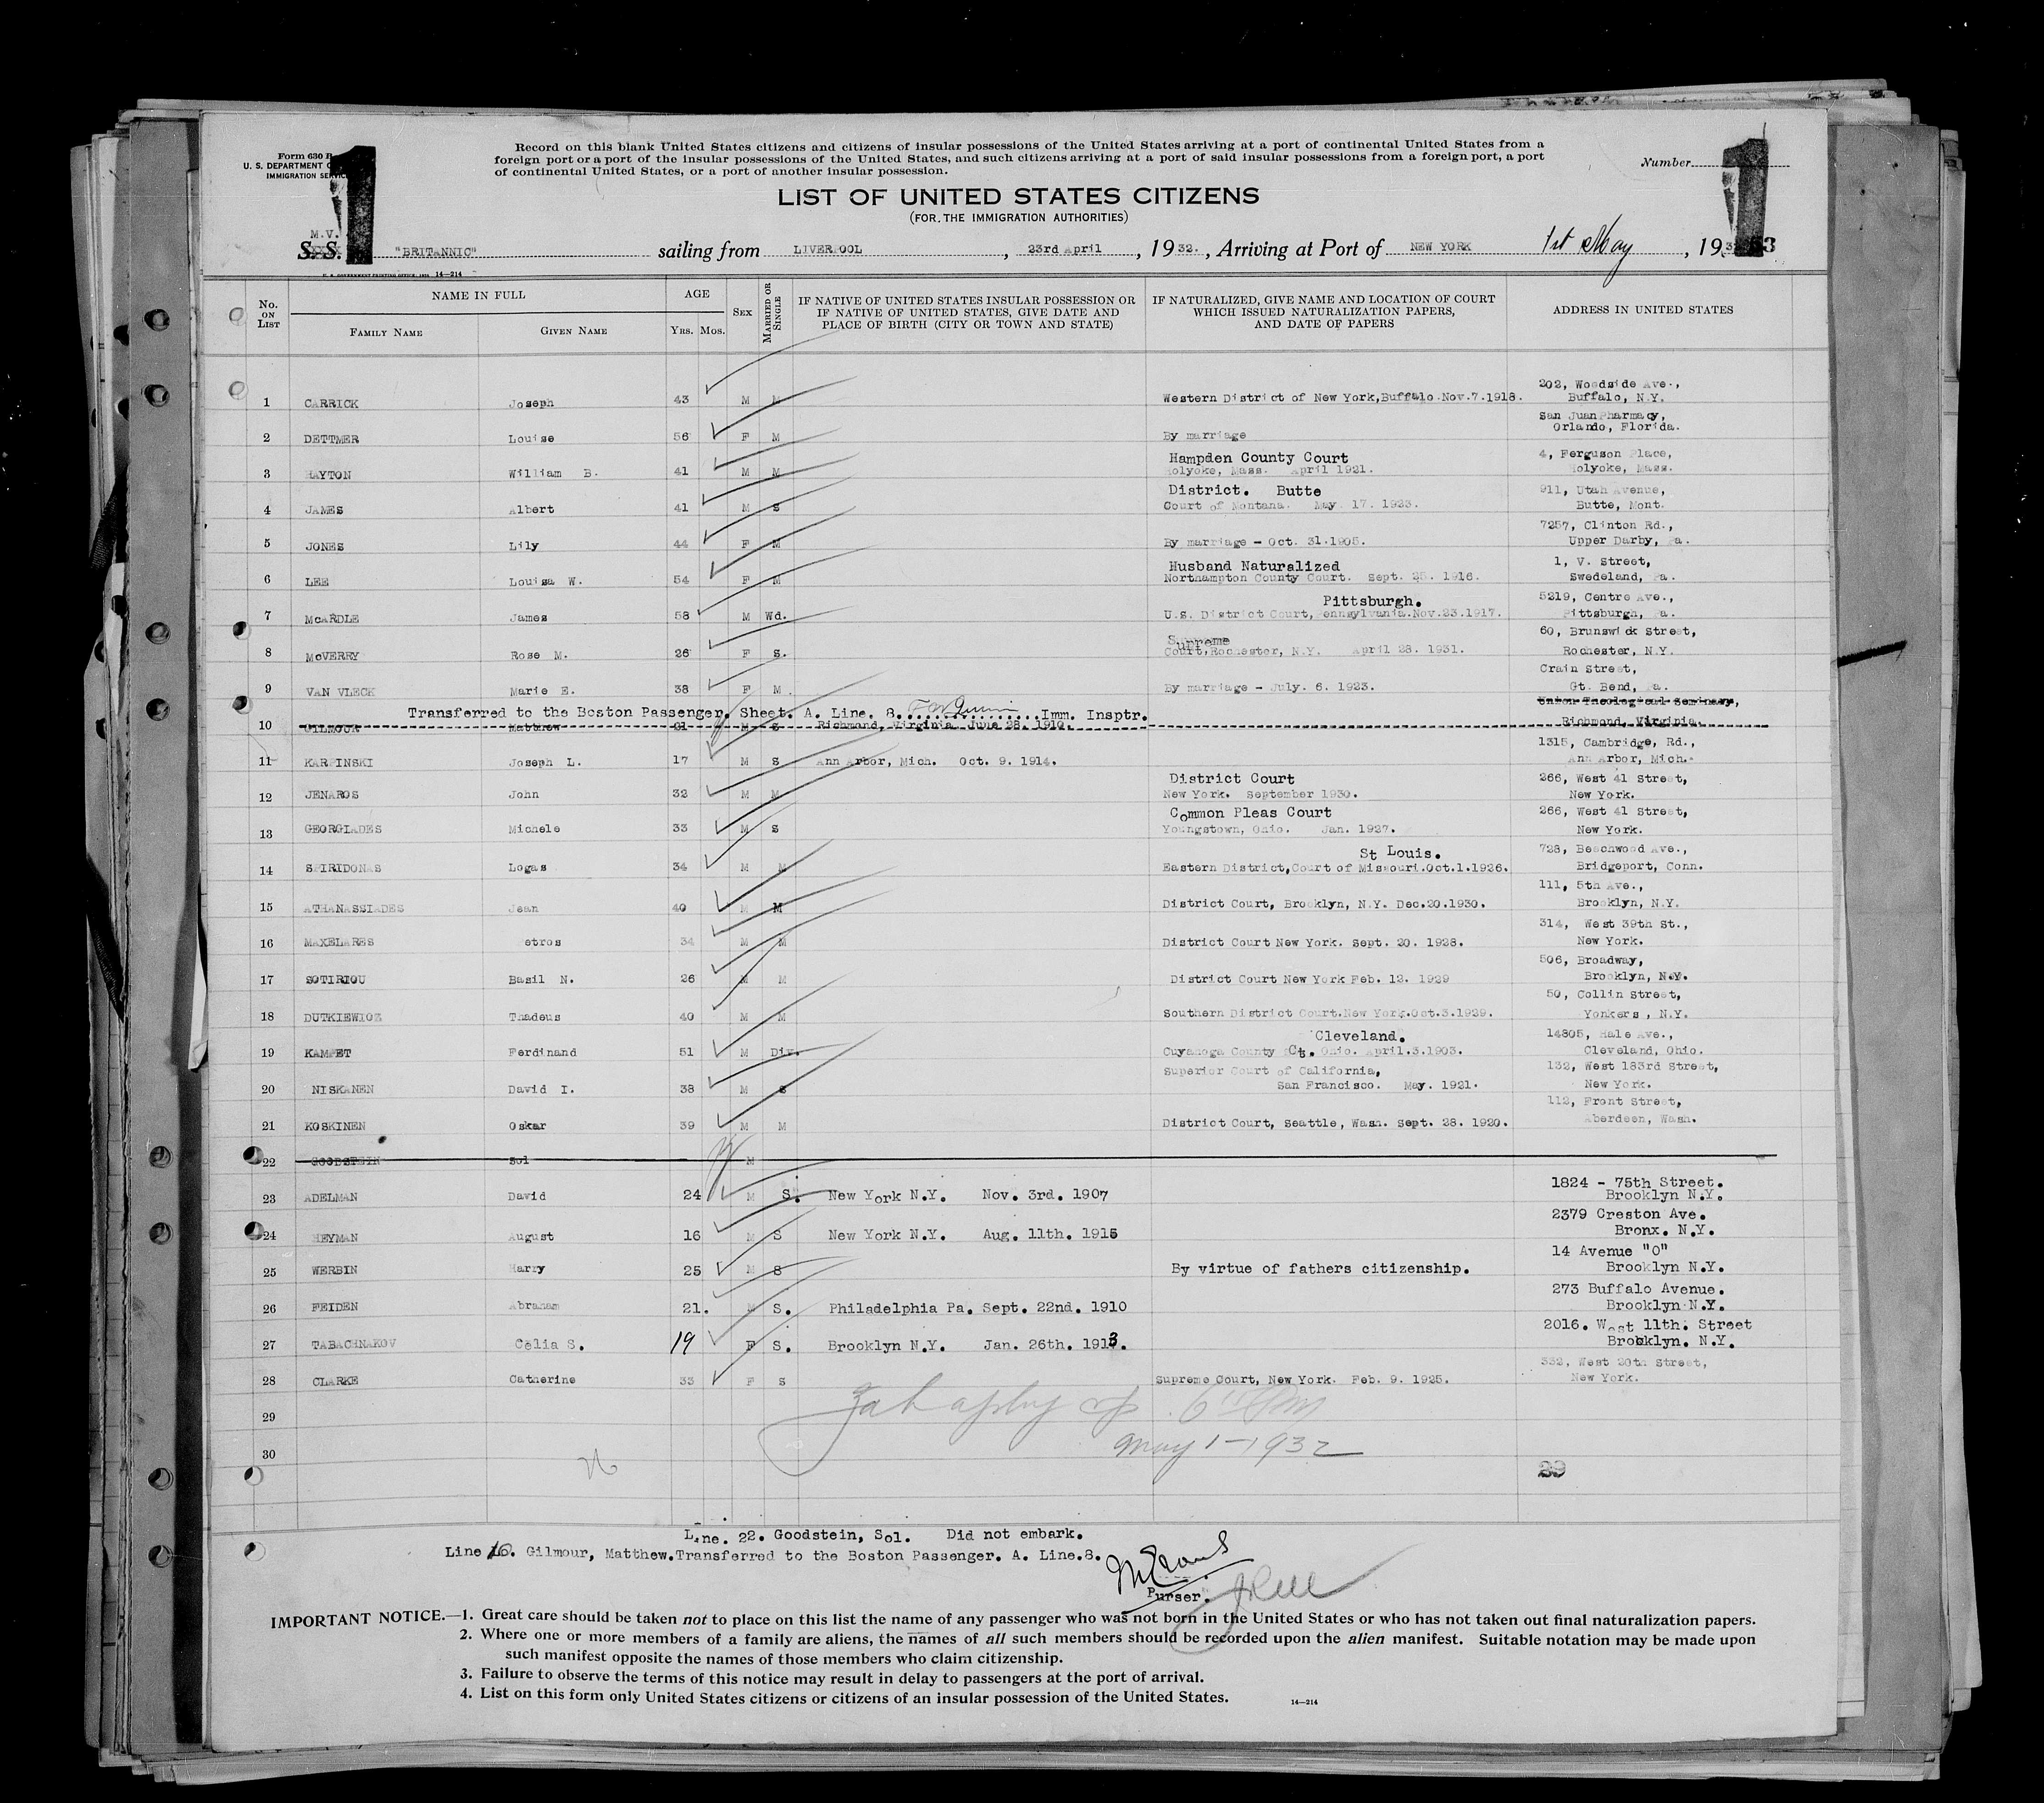 Form 630 B
U. S. DEPARTMENT
IMMIGRATION SERVICE
Record on this blank United States citizens and citizens of insular possessions of the United States arriving at a port of continental United States from a
foreign port or a port of the insular possessions of the United States, and such citizens arriving at a port of said insular possessions from a foreign port, a port
of continental United States, or a port of another insular possession.
Number
1
1
LIST OF UNITED STATES CITIZENS
(FOR THE IMMIGRATION AUTHORITIES)
M.V.
S. S. "BRITANNIC" sailing from LIVERPOOL, 23rd April, 1932., Arriving at Port of NEW YORK 1st May, 193 3
U. S. GOVERNMENT PRINTING OFFICE: 14—214
No. ON LIST
NAME IN FULL
FAMILY NAME
GIVEN NAME
AGE
YRS. MOS.
SEX
MARRIED OR SINGLE
IF NATIVE OF UNITED STATES INSULAR POSSESSION OR
IF NATIVE OF UNITED STATES, GIVE DATE AND
PLACE OF BIRTH (CITY OR TOWN AND STATE)
IF NATURALIZED, GIVE NAME AND LOCATION OF COURT
WHICH ISSUED NATURALIZATION PAPERS,
AND DATE OF PAPERS
ADDRESS IN UNITED STATES
202, Woodside Ave.,
1 CARRICK Joseph 43 M M Western District of New York,Buffalo Nov.7.1918. Buffalo, N.Y.
San Juan Pharmacy,
Orlando, Florida.
2 DETTMER Louise 56 F M By marriage
Hampden County Court 4, Ferguson Place,
3 HAYTON William B. 41 M M Holyoke, Mass. April 1921. Holyoke, Mass.
District. Butte 911, Utah Avenue,
4 JAMES Albert 41 M S Court of Montana. May 17. 1923. Butte, Mont.
7257, Clinton Rd.,
5 JONES Lily 44 F M By marriage - Oct. 31.1905. Upper Darby, Pa.
Husband Naturalized 1, V. Street,
6 LEE Louisa W. 54 F M Northampton County Court. Sept. 25. 1916. Swedeland, Pa.
Pittsburgh. 5219, Centre Ave.,
7 McARDLE James 58 M Wd. U.S. District Court, Pennsylvania.Nov.23.1917. Pittsburgh, Pa.
Supreme 60, Brunswick Street,
8 McVERRY Rose M. 26 F S. Court,Rochester, N.Y. April 28. 1931. Rochester, N.Y.
Crain Street,
9 VAN VLECK Marie E. 38 F M. By marriage - July. 6. 1923. Gt. Bend, Pa.
Transferred to the Boston Passenger. Sheet. A. Line. 8. Imm. Insptr. Union Theological Seminary,
10 GILMOUR Matthew 21 M S Richmond, Virginia June 28. 1910. Richmond, Virginia.
1315, Cambridge, Rd.,
11 KARPINSKI Joseph L. 17 M S Ann Arbor, Mich. Oct. 9. 1914. Ann Arbor, Mich.
District Court 266, West 41 Street,
12 JENAROS John 32 M M New York. September 1930. New York.
Common Pleas Court 266, West 41 Street,
13 GEORGIADES Michele 33 M S Youngstown, Ohio. Jan. 1927. New York.
St Louis. 728, Beechwood Ave.,
14 SPIRIDONAS Logas 34 M M Eastern District,Court of Missouri.Oct.1.1926. Bridgeport, Conn.
111, 5th Ave.,
15 ATHANASSIADES Jean 40 M M District Court, Brooklyn, N.Y. Dec.20.1930. Brooklyn, N.Y.
314, West 39th St.,
16 MAXELARES etros 34 M M District Court New York. Sept. 20. 1928. New York.
506, Broadway,
17 SOTIRIOU Basil N. 26 M M District Court New York Feb. 12. 1929 Brooklyn, N.Y.
50, Collin Street,
18 DUTKIEWICZ Thadeus 40 M M Southern District Court.New York.Oct.3.1929. Yonkers, N.Y.
Cleveland. 14805, Hale Ave.,
19 KAMPET Ferdinand 51 M Div. Cuyahoga County Ct. Ohio. April.3.1903. Cleveland, Ohio.
Superior Court of California, 132, West 183rd Street,
20 NISKANEN David I. 38 M S San Francisco. May. 1921. New York.
112, Front Street,
21 KOSKINEN Oskar 39 M M District Court, Seattle, Wash. Sept. 28. 1920. Aberdeen, Wash.
22 GOODSTEIN Sol M
1824 - 75th Street.
23 ADELMAN David 24 M S. New York N.Y. Nov. 3rd. 1907 Brooklyn N.Y.
2379 Creston Ave.
24 HEYMAN August 16 M S New York N.Y. Aug. 11th. 1915 Bronx. N.Y.
14 Avenue "O"
25 WERBIN Harry 25 M S By virtue of fathers citizenship. Brooklyn N.Y.
273 Buffalo Avenue.
26 FEIDEN Abraham 21. M S. Philadelphia Pa. Sept. 22nd. 1910 Brooklyn N.Y.
2016. West 11th. Street
27 TABACHNAKOV Celia S. 19 F S. Brooklyn N.Y. Jan. 26th. 1913. Brooklyn. N.Y.
332, West 20th Street,
28 CLARKE Catherine 33 F S Supreme Court, New York. Feb. 9. 1925. New York.
29
May 1-1932
30
29
Line. 22. Goodstein, Sol. Did not embark.
Line 10. Gilmour, Matthew.Transferred to the Boston Passenger. A. Line.8.
Purser.
IMPORTANT NOTICE.—1. Great care should be taken not to place on this list the name of any passenger who was not born in the United States or who has not taken out final naturalization papers.
2. Where one or more members of a family are aliens, the names of all such members should be recorded upon the alien manifest. Suitable notation may be made upon
such manifest opposite the names of those members who claim citizenship.
3. Failure to observe the terms of this notice may result in delay to passengers at the port of arrival.
4. List on this form only United States citizens or citizens of an insular possession of the United States.
14—214